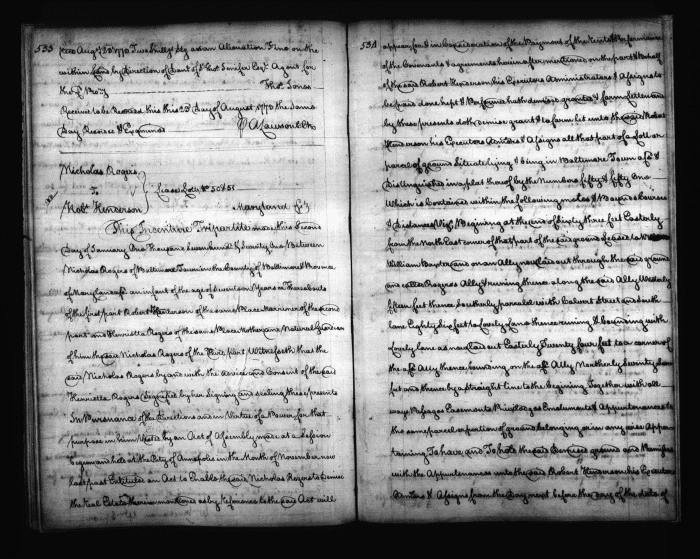 533
Aug.t 28 1770
an Alienation Fine on the
within Land by direction of Dan.l of S.t Tho.s Jenifer Esq.r Agent for
Tho.s Jones
Receiv.d to be Recorded this 28 Day of August 1770 the Same
Day Recorded & Examined
A Lawson Clk
Nicholas Rogers
To
Rob.t Henderson
Lease Lots N.o 50 & 51
Maryland
This Indenture Tripartite made this Second
Day of January One Thousand Seven hundred & Seventy One Between
Nicholas Rogers of Baltimore Town in the County of Baltimore & Province
of Maryland an infant of the age of Seventeen Years or Thereabouts
of the first part Robert Henderson of the same Place Mariner of the second
part and Henrietta Rogers of the same Place Mother and Natural Guardian
of him the said Nicholas Rogers of the Third part Witnesseth that the
said Nicholas Rogers by and with the advice and Consent of the said
Henrietta Rogers Signified by her Signing and Sealing these presents
In Pursuance of the Directions and in Virtue of a Power for that
purpose in him Vested by an Act of Assembly made at a Session
begun and held at the City of Annapolis in the Month of November now
last past Entituled an Act to Enable the said Nicholas Rogers to Demise
the Real Estate therein mentioned as by reference to the said Act will
534
appear for & in Consideration of the Payment of the Rents & Performance
of the Covenants & agreements herein after mentioned on the part & Behalf
of the said Robert Henderson his Executors Administrators & Assigns to
be paid done kept & Performed hath demised granted & farm letten and
by these presents doth demise grant & to farm let unto the said Robert
Henderson his Executors Admors & Assigns all that part of a Lott or
parcel of ground Situate lying & being in Baltimore Town af.d &
Distinguished in a plat thereof by the Numbers fifty & fifty One
Which is Contained within the following metes & Bounds Courses
& Distances Viz.t Beginning at the end of Sixty three feet Easterly
from the North East corner of that part of the said ground Leased to
William Baxter and on an Alley now laid out through the said ground
and called Rogers's Alley & runing thence along the said Alley Westerly
fifteen feet thence Southerly parralel with Calvert Street and South
lane Eighty Six feet to Lovely Lane thence runing & bounding with
Lovely lane as now laid out Easterly Twenty four feet to a corner of
the af.d Alley thence bounding on the af.d Alley Northerly Seventy
feet and thence by a straight line to the Beginning Together with all
ways Passages Easements Priviledges Emoluments & Appurtenances to
the same parcel or portion of ground belonging or in any wise Apper
taining To have and To hold the said Demised ground and Premises
with the Appurtenances unto the said Robert Henderson his Executors
Admtors & Assigns from the day next before the day of the date of